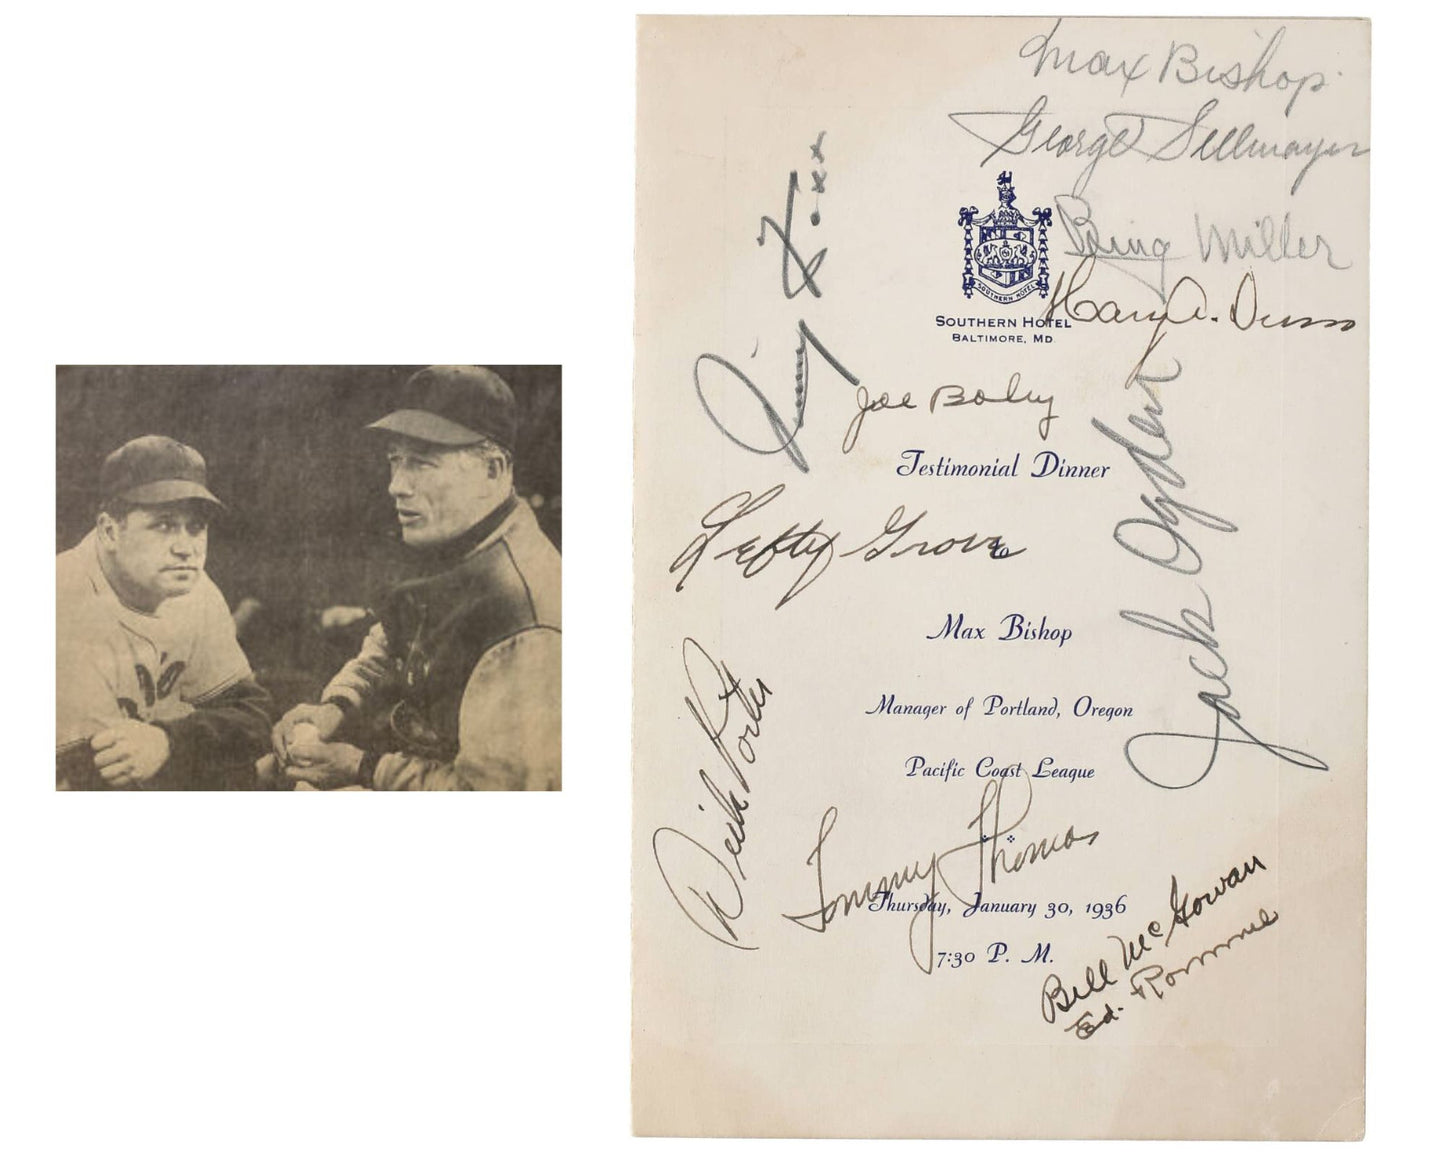 Max Bishop
George Sellmayer
Bing Miller
Harry A.
SOUTHERN HOTEL
SOUTHERN HOTEL
BALTIMORE, MD
Jimmy Foxx
Joe Boley
Testimonial Dinner
Jack Ogden
Lefty Grove
to
Max Bishop
Manager of Portland, Oregon
Pacific Coast League
Dick Porter
Tommy Thomas
Thursday, January 30, 1936
7:30 P. M.
Bill McGowan
Ed. Rommel